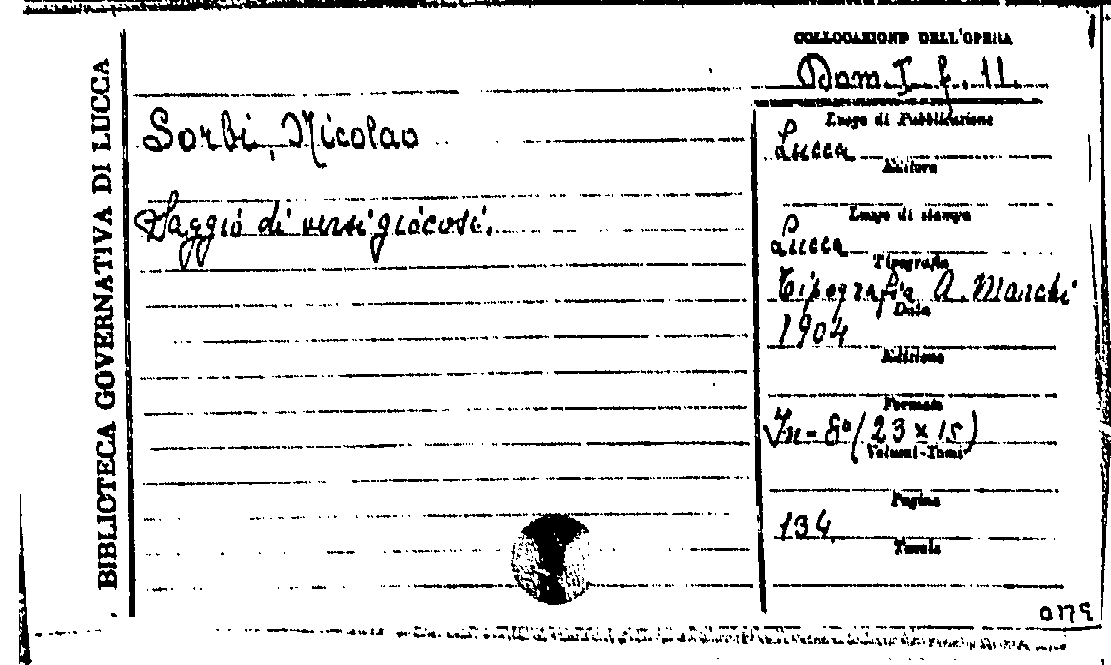 BIBLIOTECA GOVERNATIVA DI LUCCA
COLLOCAZIONE DELL'OPERA
Dom. I. f. 11.
Sorbi, Nicolao
Saggio di versi giocosi.
Luogo di Pubblicazione
Lucca
Editore
Luogo di stampa
Lucca
Tipografia
Tipografia A. Marchi
Data
1904
Edizione
Formato
In-8° (23 x 15)
Volumi-Tomi
Pagine
134
Tavole